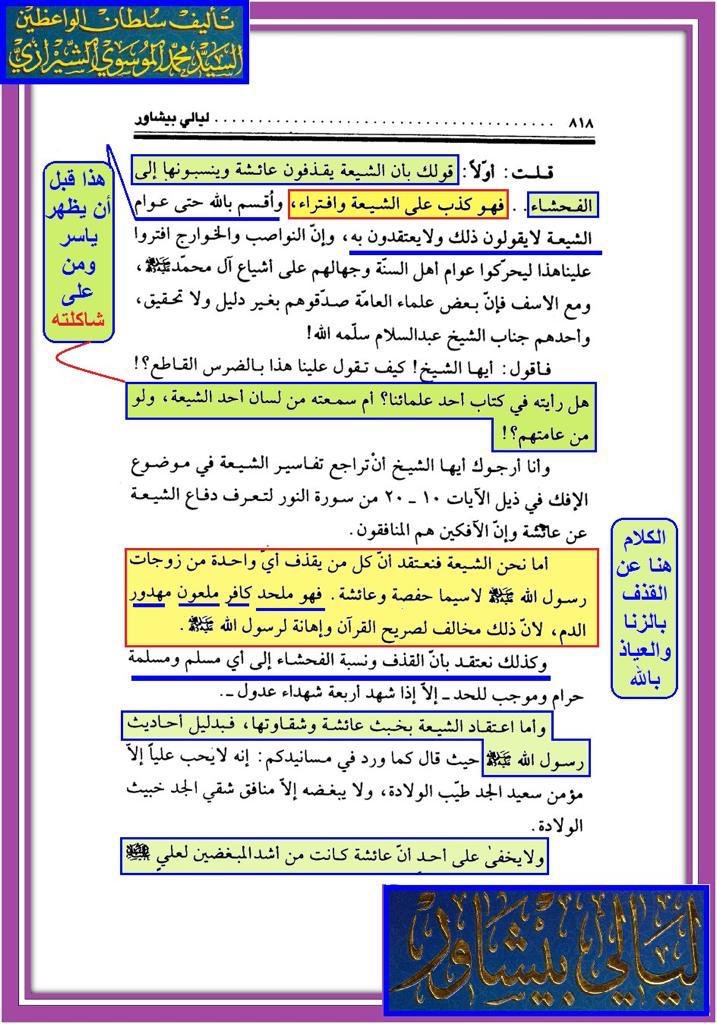 تأليف سلطان الواعظين
السيد محمد الموسوي الشيرازي
٨١٨ ........................................ ليالي بيشاور
قلت: أوّلاً: قولك بان الشيعة يقذفون عائشة وينسبونها إلى
الفحشاء.. فهو كذب على الشيعة وافتراء، وأقسم بالله حتى عوام
الشيعة لايقولون ذلك ولايعتقدون به، وإنّ النواصب والخوارج افتروا
عليناهذا ليحركوا عوام أهل السنّة وجهالهم على أشياع آل محمّد ﷺ،
ومع الاسف فإنّ بعض علماء العامّة صدّقوهم بغير دليل ولا تحقيق،
وأحدهم جناب الشيخ عبدالسلام سلّمه الله!
فأقول: أيها الشيخ! كيف تقول علينا هذا بالضرس القاطع؟!
هل رأيته في كتاب أحد علمائنا؟ أم سمعته من لسان أحد الشيعة، ولو
من عامتهم؟!
وأنا أرجوك أيها الشيخ أنْ تراجع تفاسير الشيعة في موضوع
الإفك في ذيل الآيات ١٠ ـ ٢٠ من سورة النور لتعرف دفاع الشيعة
عن عائشة وإنّ الآفكين هم المنافقون.
أما نحن الشيعة فنعتقد أنّ كل من يقذف أيّ واحدة من زوجات
رسول الله ﷺ لاسيما حفصة وعائشة. فهو ملحد كافر ملعون مهدور
الدم، لانّ ذلك مخالف لصريح القرآن وإهانة لرسول الله ﷺ.
وكذلك نعتقد بانّ القذف ونسبة الفحشاء إلى أي مسلم ومسلمة
حرام وموجب للحد ـ إلاّ إذا شهد أربعة شهداء عدول ـ.
وأما اعتقاد الشيعة بخبث عائشة وشقاوتها، فبدليل أحاديث
رسول الله ﷺ حيث قال كما ورد في مسانيدكم: إنه لايحب علياً إلاّ
مؤمن سعيد الجد طيّب الولادة، ولا يبغضه إلاّ منافق شقي الجد خبيث
الولادة.
ولايخفىٰ على أحد أنّ عائشة كانت من أشد المبغضين لعلي
هذا قبل
أن يظهر
ياسر
ومن
على
شاكلته
الكلام
هنا عن
القذف
بالزنا
والعياذ
بالله
ليالي بيشاور